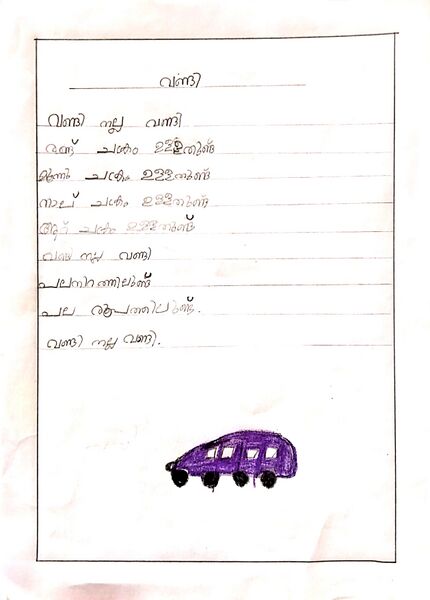 വണ്ടി
വണ്ടി നല്ല വണ്ടി
രണ്ട് ചക്രം ഉള്ളതുണ്ട്
മൂന്നു ചക്രം ഉള്ളതുണ്ട്
നാല് ചക്രം ഉള്ളതുണ്ട്
ആറ് ചക്രം ഉള്ളതുണ്ട്
വണ്ടി നല്ല വണ്ടി
പലനിറത്തിലുണ്ട്
പല രൂപത്തിലുണ്ട്.
വണ്ടി നല്ല വണ്ടി.